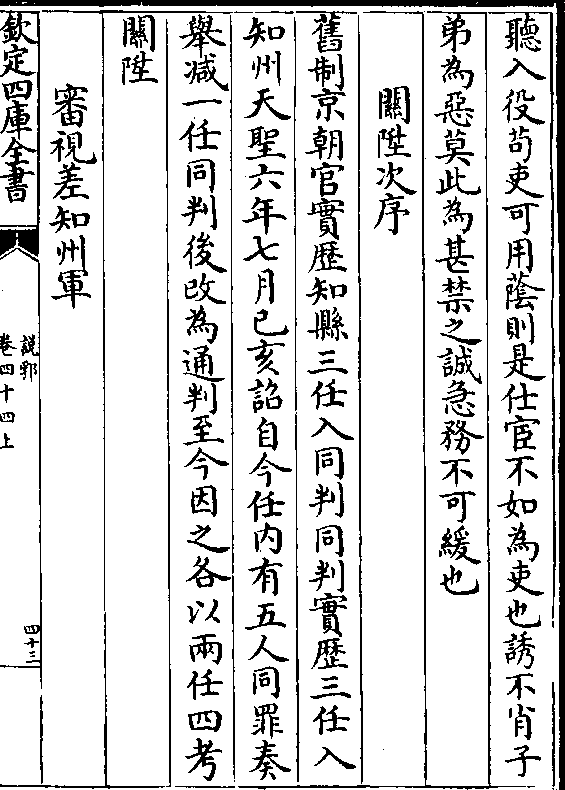 聽入役苟吏可用蔭則是仕宦不如為吏也誘不肖子
弟為惡莫此為甚禁之誠急務不可緩也
關陞次序
舊制京朝官實歷知縣三任入同判同判實歷三任入
知州天聖六年七月已亥詔自今任内有五人同罪奏
舉減一任同判後改為通判至今因之各以兩任四考
關陞
審視差知州軍
欽定四庫全書
說郛
卷四十四上
四十三